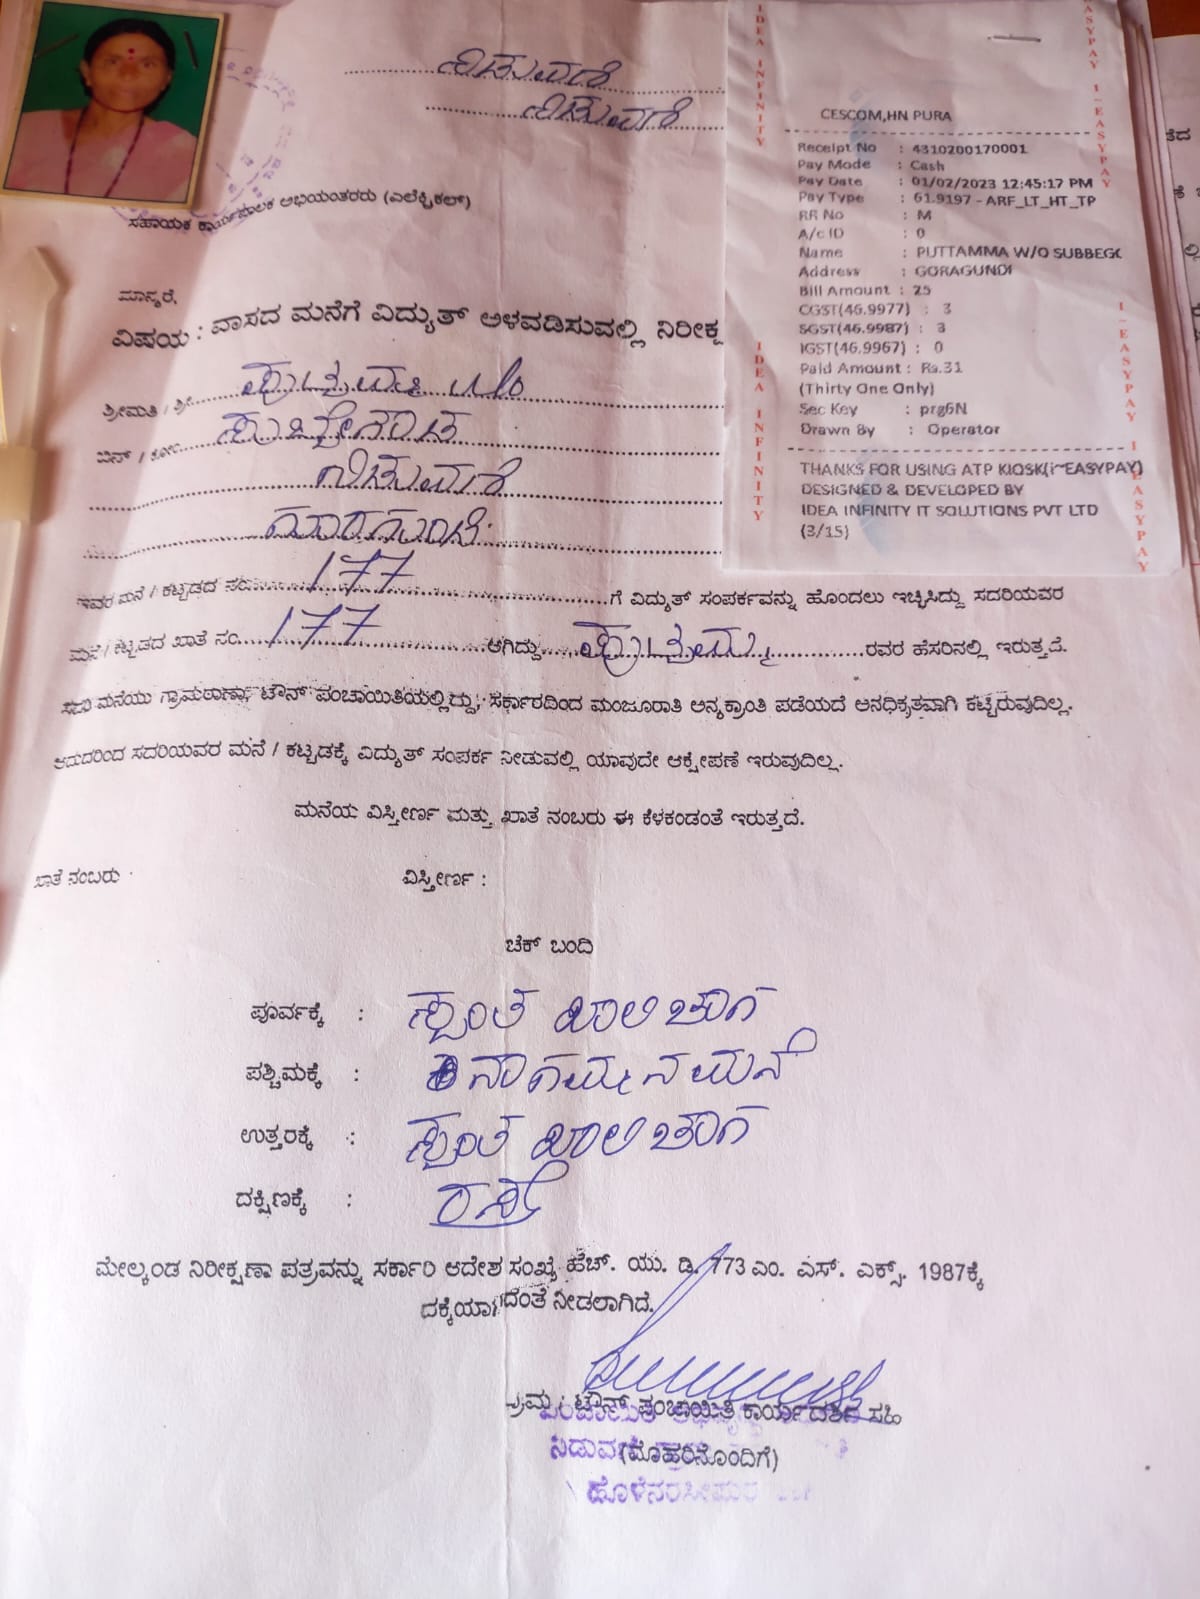 ನಿಡುವಣಿ
ನಿಡುವಣಿ
ಸಹಾಯಕ ಕಾರ್ಯಪಾಲಕ ಅಭಿಯಂತರರು (ಎಲೆಕ್ಟ್ರಿಕಲ್)
ಮಾನ್ಯರೆ,
ವಿಷಯ : ವಾಸದ ಮನೆಗೆ ವಿದ್ಯುತ್ ಅಳವಡಿಸುವಲ್ಲಿ ನಿರೀಕ್ಷ
ಶ್ರೀಮತಿ / ಶ್ರೀ ಪುಟ್ಟಮ್ಮ W/o
ಬಿನ್ / ಕೋಂ ಸುಬ್ಬೇಗೌಡ
ನಿಡುವಣಿ
ಗೊರಗುಂಡಿ
ಇವರ ಮನೆ / ಕಟ್ಟಡದ ನಂ 177 ಗೆ ವಿದ್ಯುತ್ ಸಂಪರ್ಕವನ್ನು ಹೊಂದಲು ಇಚ್ಛಿಸಿದ್ದು ಸದರಿಯವರ
ಮನೆ / ಕಟ್ಟಡದ ಖಾತೆ ನಂ 177 ಆಗಿದ್ದು ಪುಟ್ಟಮ್ಮ ರವರ ಹೆಸರಿನಲ್ಲಿ ಇರುತ್ತದೆ.
ಸದರಿ ಮನೆಯು ಗ್ರಾಮಠಾಣಾ, ಟೌನ್ ಪಂಚಾಯಿತಿಯಲ್ಲಿದ್ದು, ಸರ್ಕಾರದಿಂದ ಮಂಜೂರಾತಿ ಅನ್ಯಕ್ರಾಂತಿ ಪಡೆಯದೆ ಅನಧಿಕೃತವಾಗಿ ಕಟ್ಟಿರುವುದಿಲ್ಲ.
ಆದುದರಿಂದ ಸದರಿಯವರ ಮನೆ / ಕಟ್ಟಡಕ್ಕೆ ವಿದ್ಯುತ್ ಸಂಪರ್ಕ ನೀಡುವಲ್ಲಿ ಯಾವುದೇ ಆಕ್ಷೇಪಣೆ ಇರುವುದಿಲ್ಲ.
ಮನೆಯ ವಿಸ್ತೀರ್ಣ ಮತ್ತು ಖಾತೆ ನಂಬರು ಈ ಕೆಳಕಂಡಂತೆ ಇರುತ್ತದೆ.
ಖಾತೆ ನಂಬರು ವಿಸ್ತೀರ್ಣ :
ಚೆಕ್ ಬಂದಿ
ಪೂರ್ವಕ್ಕೆ : ಸ್ವಂತ ಖಾಲಿ ಜಾಗ
ಪಶ್ಚಿಮಕ್ಕೆ : ನಾಗಮ್ಮನ ಮನೆ
ಉತ್ತರಕ್ಕೆ : ಸ್ವಂತ ಖಾಲಿ ಜಾಗ
ದಕ್ಷಿಣಕ್ಕೆ : ರಸ್ತೆ
ಮೇಲ್ಕಂಡ ನಿರೀಕ್ಷಣಾ ಪತ್ರವನ್ನು ಸರ್ಕಾರಿ ಆದೇಶ ಸಂಖ್ಯೆ ಹೆಚ್. ಯು. ಡಿ. 773 ಎಂ. ಎಸ್. ಎಕ್ಸ್. 1987ಕ್ಕೆ
ದಕ್ಕೆಯಾಗದಂತೆ ನೀಡಲಾಗಿದೆ.
ಗ್ರಾಮ / ಟೌನ್ ಪಂಚಾಯಿತಿ ಕಾರ್ಯದರ್ಶಿ ಸಹಿ
(ಮೊಹರಿನೊಂದಿಗೆ)
ಹೊಳೆನರಸೀಪುರ
CESCOM,HN PURA
Receipt No : 4310200170001
Pay Mode : Cash
Pay Date : 01/02/2023 12:45:17 PM
Pay Type : 61.9197 - ARF_LT_HT_TP
RR No : M
A/c ID : 0
Name : PUTTAMMA W/O SUBBEGC
Address : GORAGUNDI
Bill Amount : 25
CGST(46.9977) : 3
SGST(46.9987) : 3
IGST(46.9967) : 0
Paid Amount : Rs.31
(Thirty One Only)
Sec Key : prg6N
Drawn By : Operator
THANKS FOR USING ATP KIOSK(i~EASYPAY)
DESIGNED & DEVELOPED BY
IDEA INFINITY IT SOLUTIONS PVT LTD
(3/15)
IDEA INFINITY
IDEA INFINITY
EASYPAY I ~EASYPAY
I ~EASYPAY I
EASYPAY